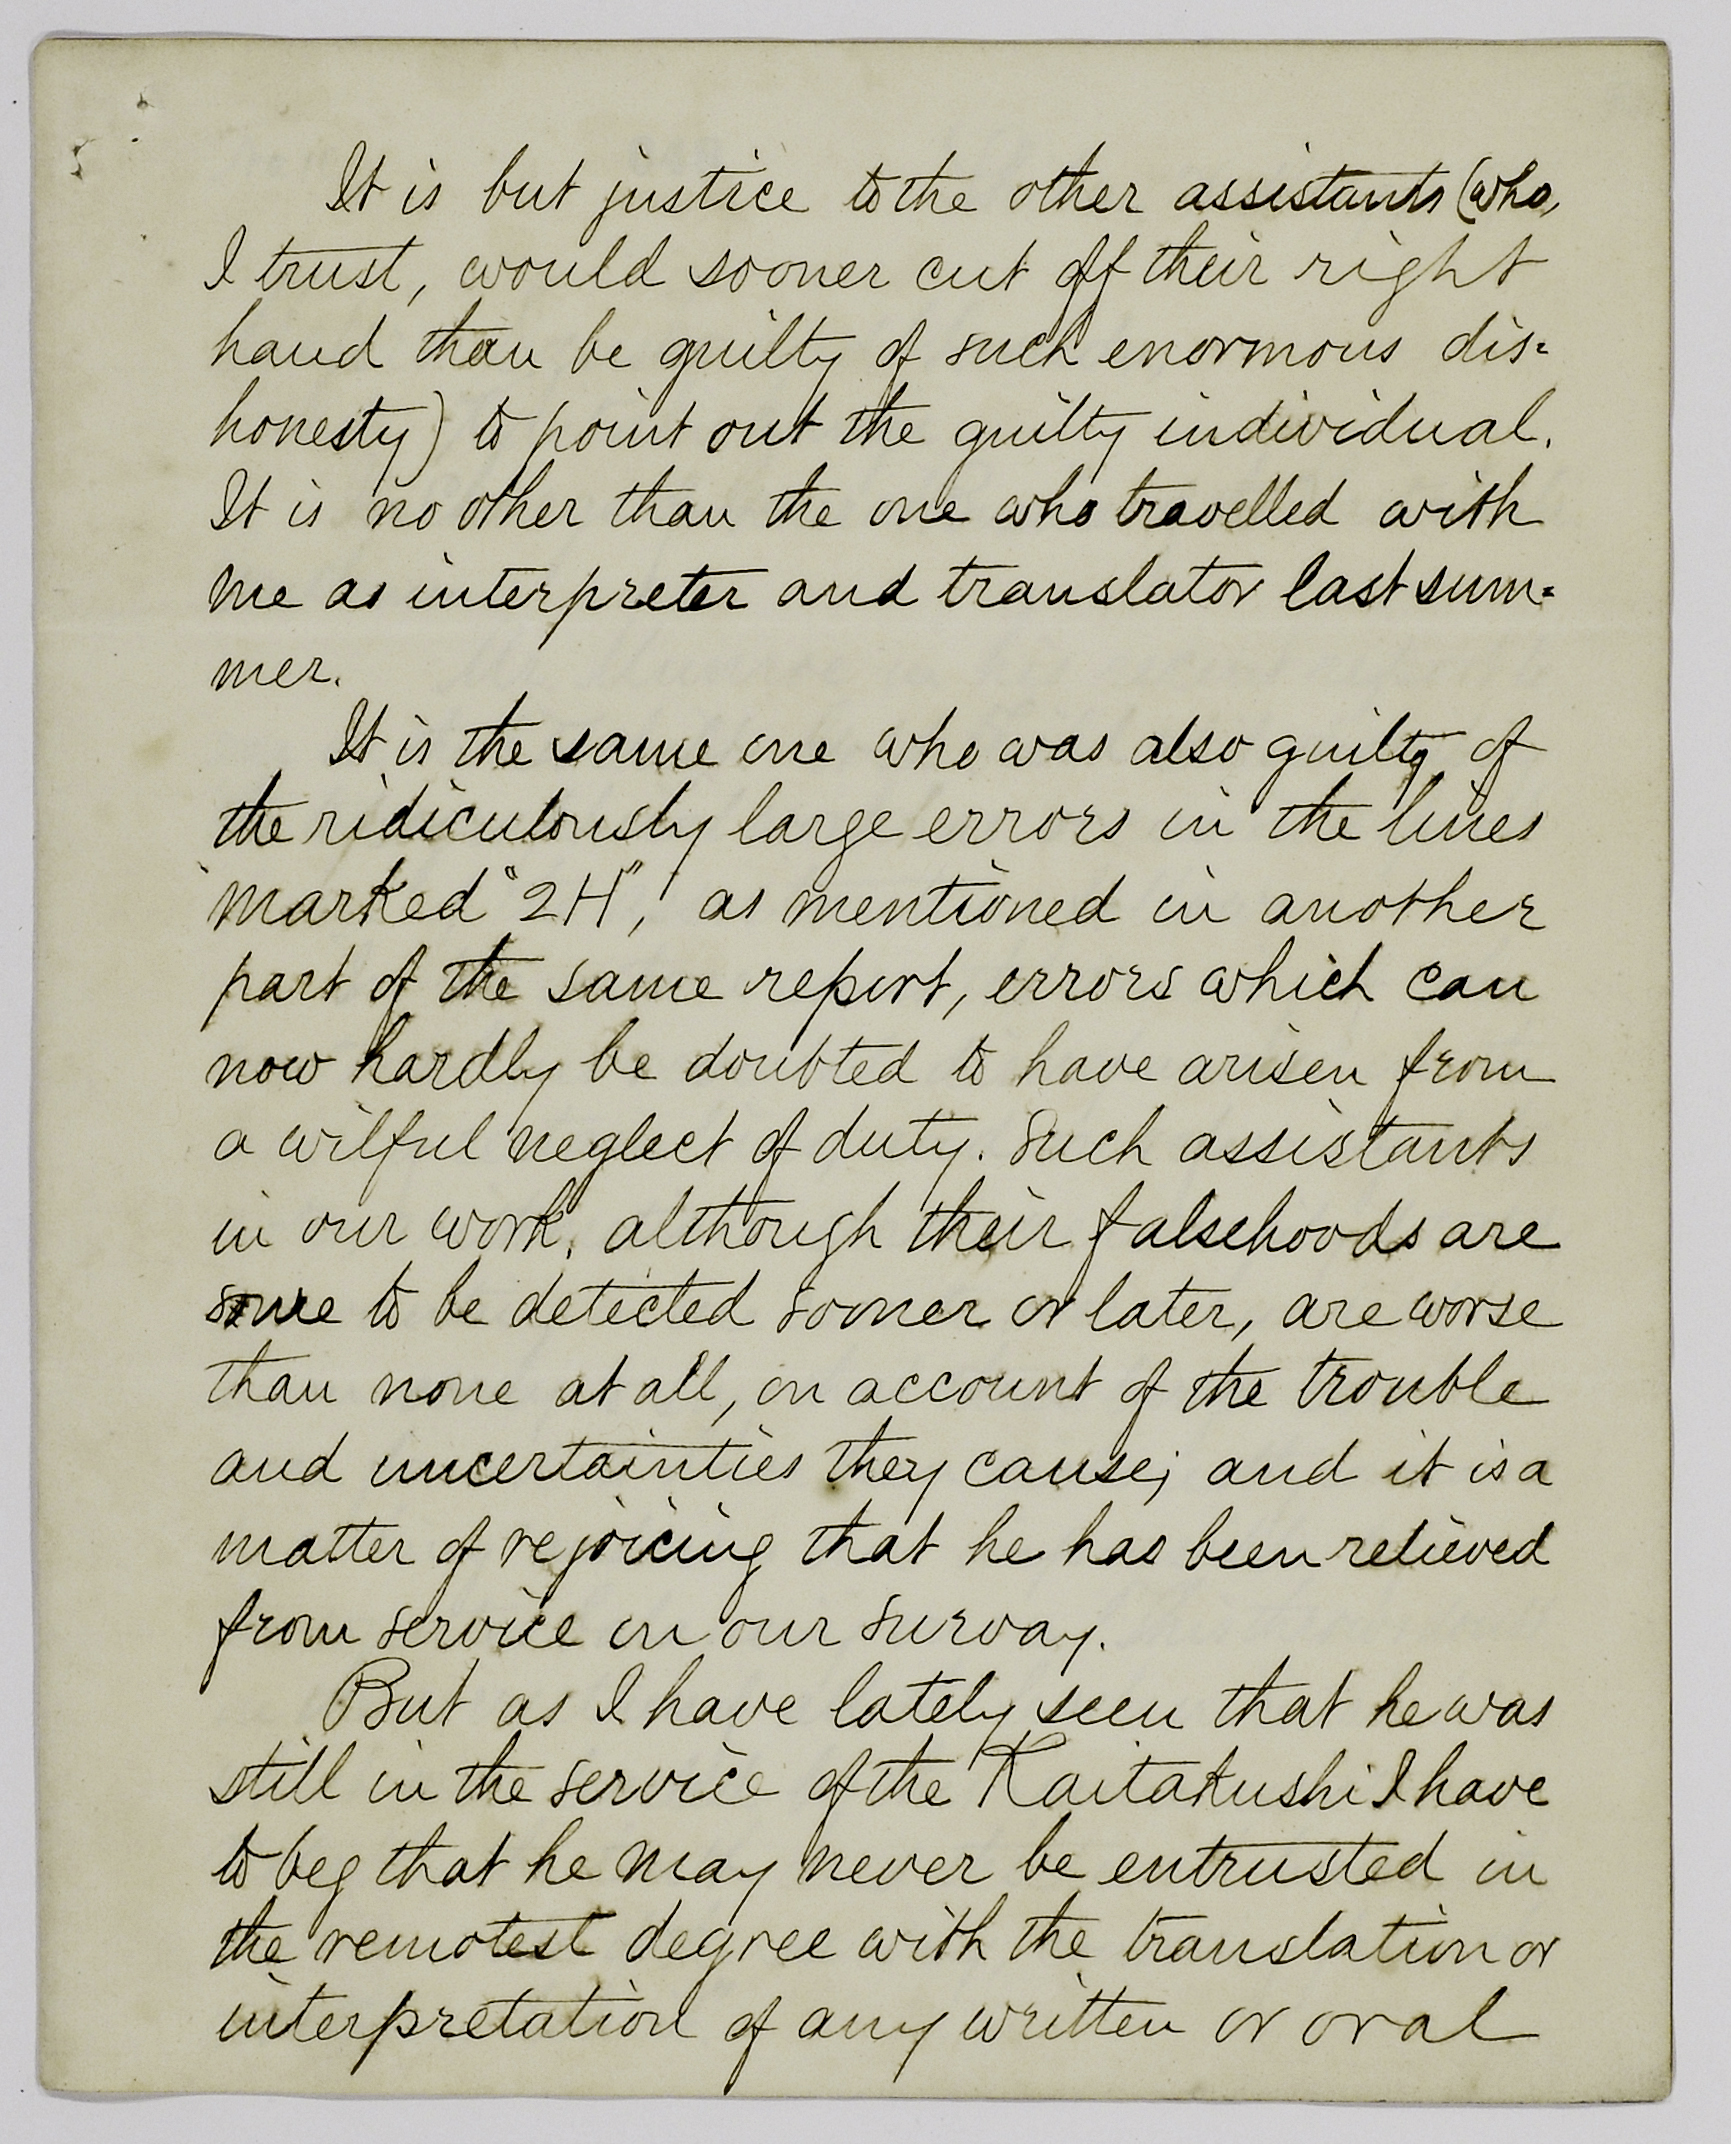 It is but justice to the other assistants (who,
I trust, would sooner cut off their right
hand than be guilty of such enormous dis=
honesty) to point out the guilty individual.
It is no other than the one who travelled with
me as interpreter and translator last sum=
mer.
It is the same one who was also guilty of
the ridiculously large errors in the lines
marked "2H", as mentioned in another
part of the same report, errors which can
now hardly be doubted to have arisen from
a wilful neglect of duty. Such assistants
in our work, although their falsehoods are
sure to be detected sooner or later, are worse
than none at all, on account of the trouble
and uncertainties they cause; and it is a
matter of rejoicing that he has been relieved
from service on our survay.
But as I have lately seen that he was
still in the service of the Kaitakushi I have
to beg that he may never be entrusted in
the remotest degree with the translation or
interpretation of any written or oral